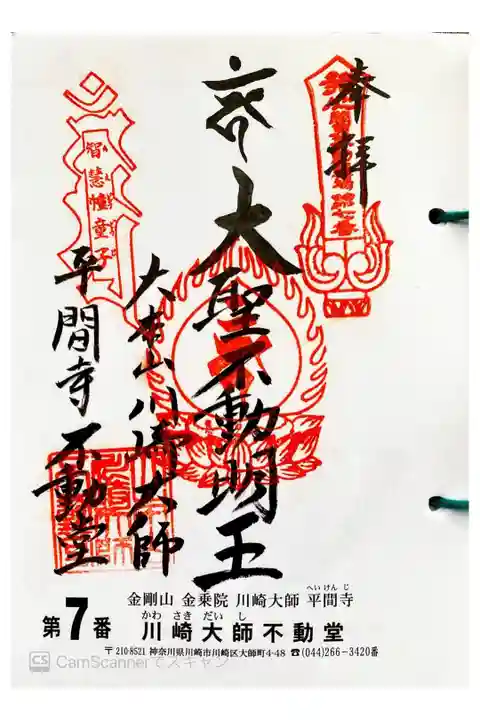 奉拝
大聖不動明王
大本山川崎大師
平間寺 不動堂
智慧幢童子
金剛山 金乗院 川崎大師 平間寺
へいけんじ
かわ さき だい し
第7番 川崎大師不動堂
〒210-8521 神奈川県川崎市川崎区大師町4-48 ☎(044)266-3420番
CS CamScannerでスキャン